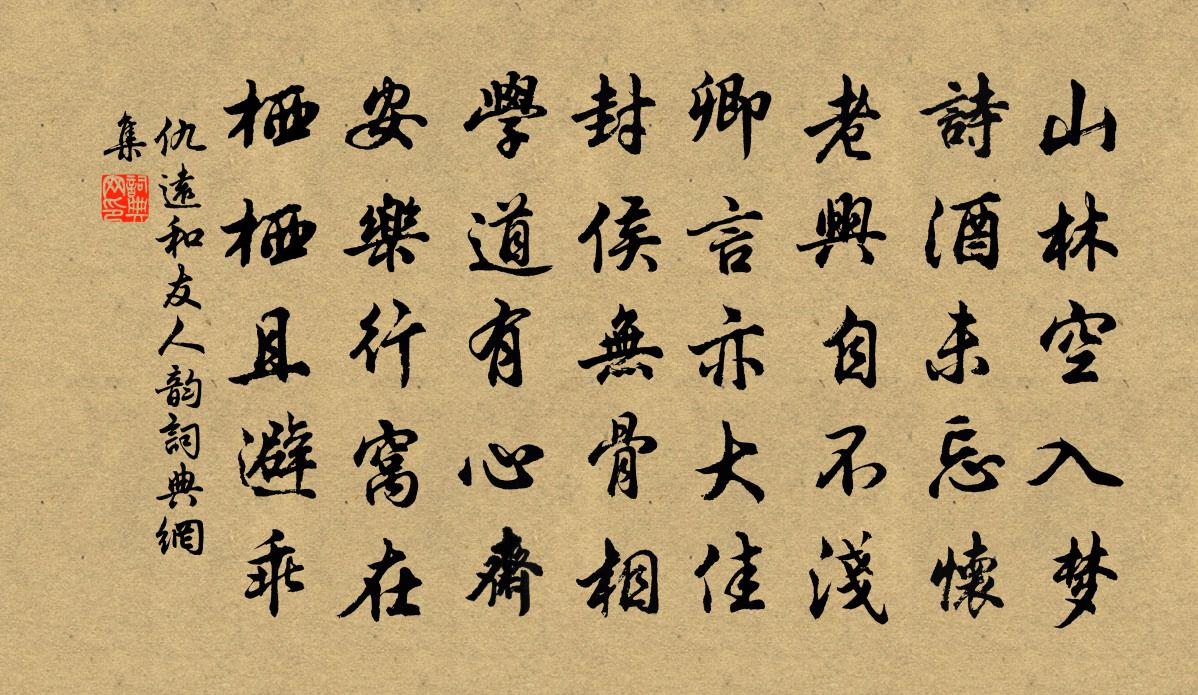 山林空入梦
詩酒未忘懷
老興自不淺
卿言亦大佳
封侯無骨相
學道有心齋
安樂行窩在
栖栖且避乖
仇遠和友人韵詞典網
集
詞典
网印